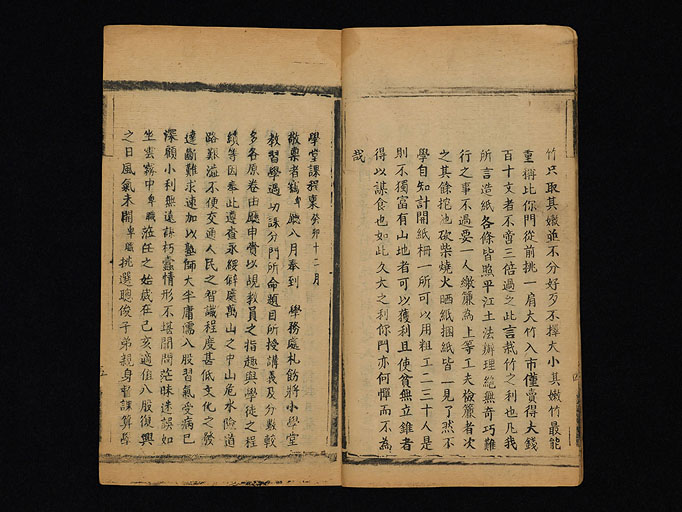 竹只取其嫩並不分好歹不擇大小其嫩竹最能
重稱比你門從前挑一肩大竹入市僅賣得大錢
百十文者不啻三倍過之此言栽竹之利也凡我
所言造紙各條皆照平江土法辦理絕無奇巧難
行之事不過要一人繳簾為上等工夫檢簾者次
之其餘挖池砍柴燒火晒紙捆紙皆一見了然不
學自知計開紙柵一所可以用粗工二三十人是
則不獨富有山地者可以獲利且使貧無立錐者
得以謀食也如此久大之利你門亦何憚而不為
哉
學堂課程稟癸卯十二月
敬稟者竊卑廳八月奉到 學務處札飭將小學堂
教習學過功課分門所命題目所授講義及分數較
多各原卷由廳申賫以覘教員之指趣與學徒之程
績等因奉此遵查永綏僻處萬山之中山危水險道
路艱澁不便交通人民之智識程度甚低文化之發
達斷難求速加以塾師大半庸儒八股習氣受病已
深顧小利無遠謀朽蠹情形不堪聞問茫昧迷誤如
坐雲霧中卑職蒞任之始歲在己亥適值八股復興
之日風氣未開卑職挑選聰俊子弟親身督課算學